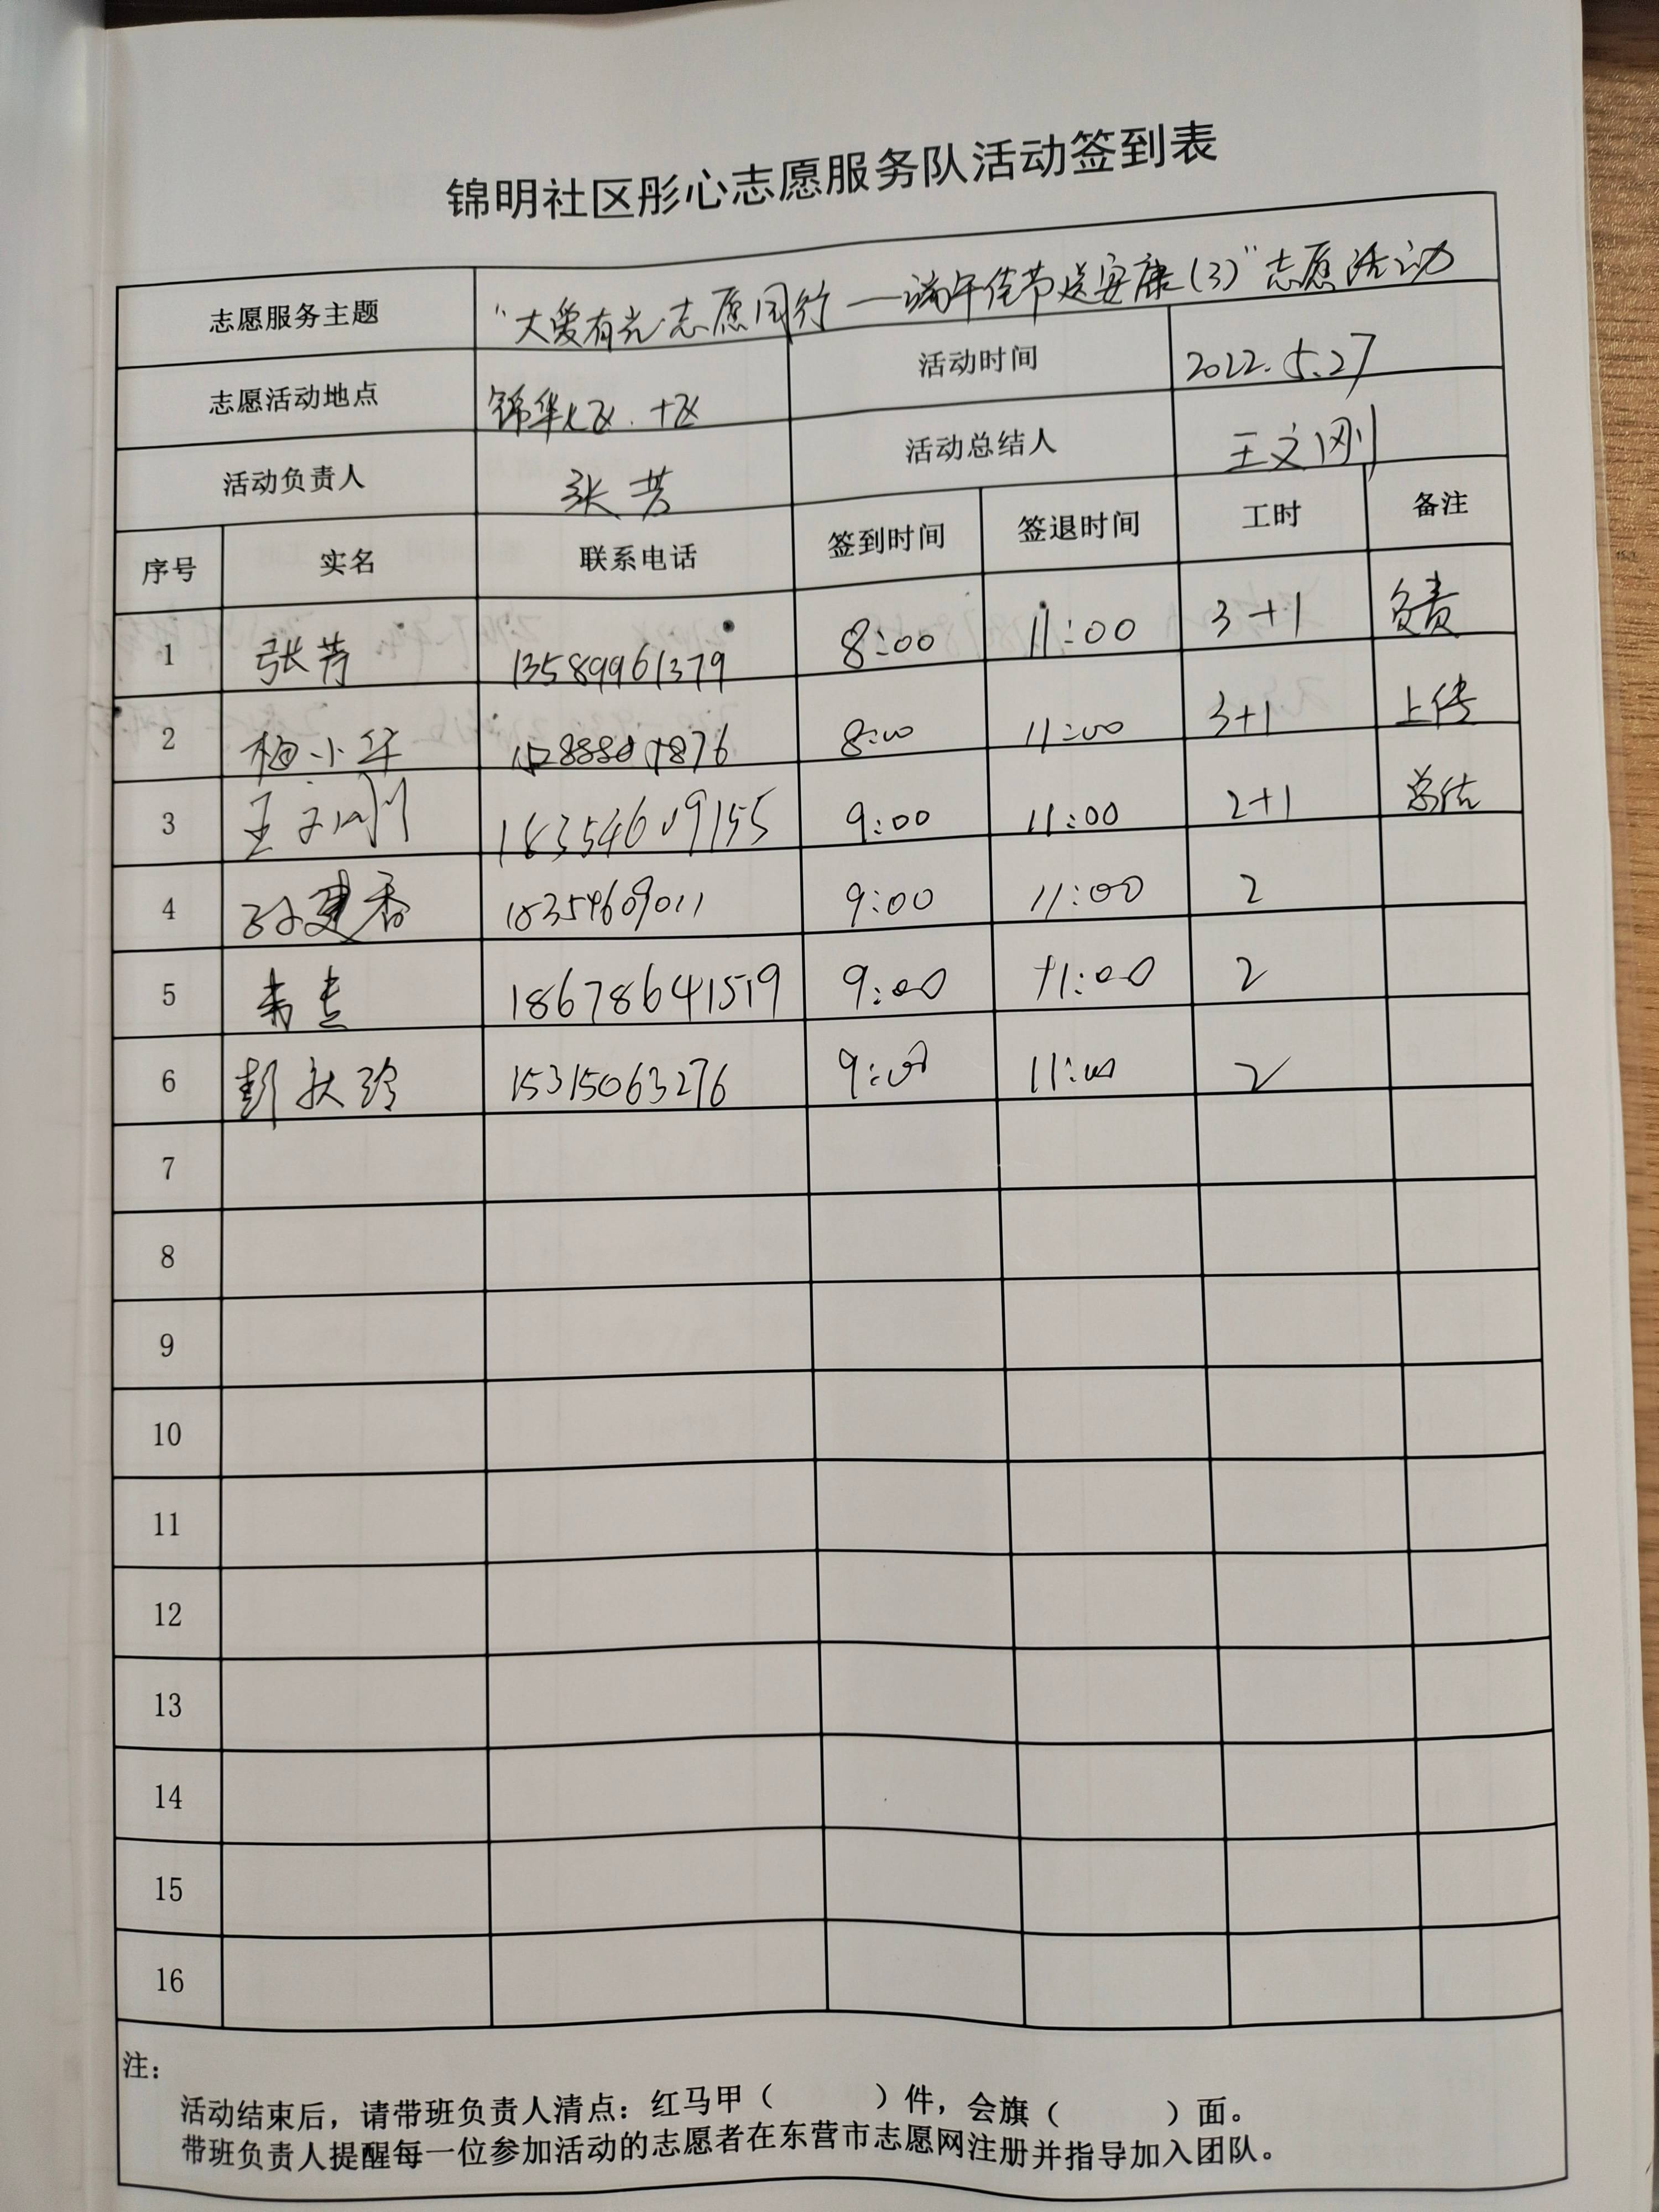 锦明社区彤心志愿服务队活动签到表
志愿服务主题 "大爱有光 志愿同行——端午佳节送安康(3)"志愿活动
志愿活动地点 锦华七区.十区 活动时间 2022.5.27
活动负责人 张芳 活动总结人 王文刚
序号 实名 联系电话 签到时间 签退时间 工时 备注
1 张芳 13589961379 8:00 11:00 3+1 负责
2 梅小华 8:00 11:00 3+1 上传
3 王文刚 9:00 11:00 2+1 总结
4 孙建香 18354609011 9:00 11:00 2
5 18678641519 9:00 11:00 2
6 彭秋玲 15315063276 9:00 11:00 2
7
8
9
10
11
12
13
14
15
16
注：
活动结束后，请带班负责人清点：红马甲（ ）件，会旗（ ）面。
带班负责人提醒每一位参加活动的志愿者在东营市志愿网注册并指导加入团队。